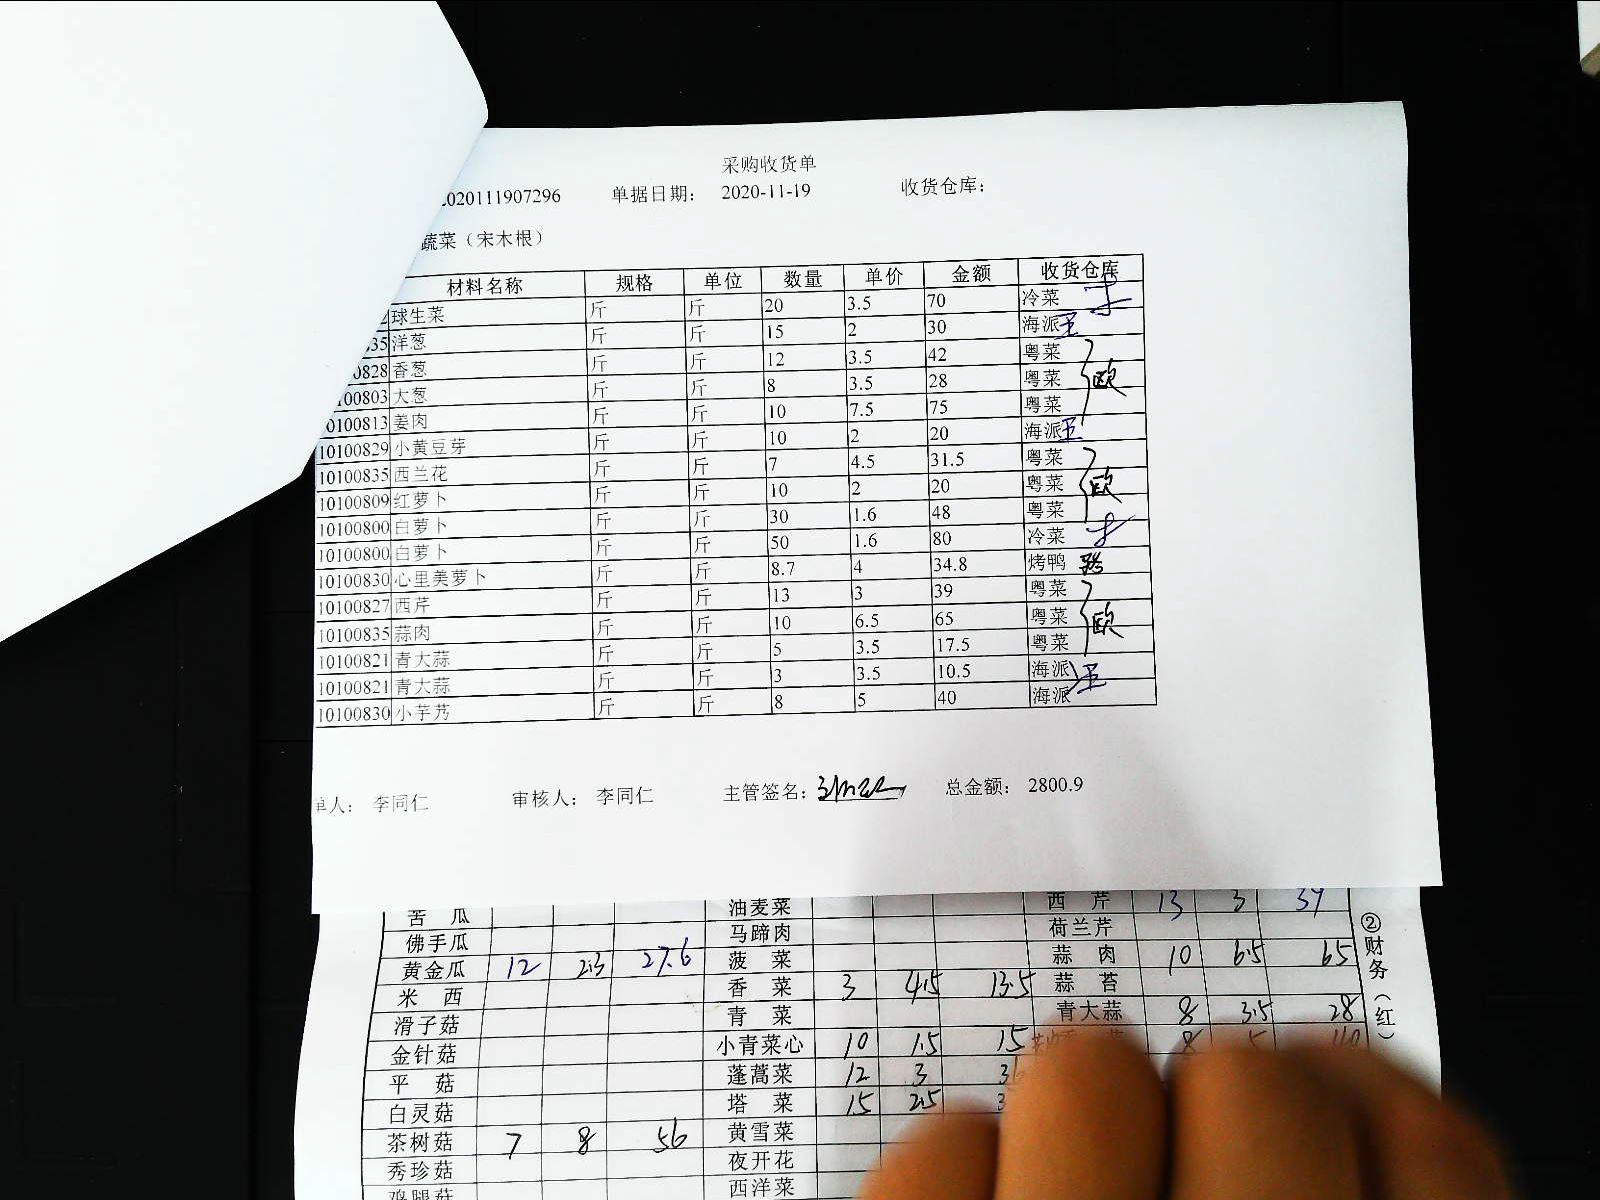 采购收货单
020111907296 单据日期: 2020-11-19 收货仓库:
蔬菜（宋木根）
材料名称 规格 单位 数量 单价 金额 收货仓库
球生菜 斤 斤 20 3.5 70 冷菜
35 洋葱 斤 斤 15 2 30 海派 王
0828 香葱 斤 斤 12 3.5 42 粤菜
100803 大葱 斤 斤 8 3.5 28 粤菜 欧
0100813 姜肉 斤 斤 10 7.5 75 粤菜
10100829 小黄豆芽 斤 斤 10 2 20 海派 王
10100835 西兰花 斤 斤 7 4.5 31.5 粤菜
10100809 红萝卜 斤 斤 10 2 20 粤菜 欧
10100800 白萝卜 斤 斤 30 1.6 48 粤菜
10100800 白萝卜 斤 斤 50 1.6 80 冷菜
10100830 心里美萝卜 斤 斤 8.7 4 34.8 烤鸭
10100827 西芹 斤 斤 13 3 39 粤菜
10100835 蒜肉 斤 斤 10 6.5 65 粤菜 欧
10100821 青大蒜 斤 斤 5 3.5 17.5 粤菜
10100821 青大蒜 斤 斤 3 3.5 10.5 海派 王
10100830 小芋艿 斤 斤 8 5 40 海派
单人: 李同仁 审核人: 李同仁 主管签名: 总金额: 2800.9
苦瓜 油麦菜 西芹 13 3 39
佛手瓜 马蹄肉 荷兰芹
黄金瓜 12 2.3 27.6 菠菜 蒜肉 10 6.5 65
米西 香菜 3 4.5 13.5 蒜苔
滑子菇 青菜 青大蒜 8 3.5 28
金针菇 小青菜心 10 1.5 15 8 5
平菇 蓬蒿菜 12 3
白灵菇 塔菜 15 2.5
茶树菇 7 8 56 黄雪菜
秀珍菇 夜开花
鸡腿菇 西洋菜
②财务（红）